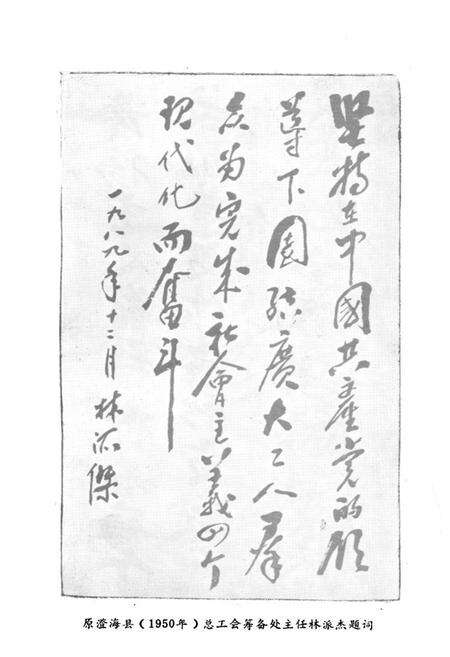 坚持在中國共產党的领
导下團结廣大工人羣
众为完成社會主义義四个
现代化而奮斗
一九八九年十二月 林派傑
原澄海县（1950年）总工会筹备处主任林派杰题词